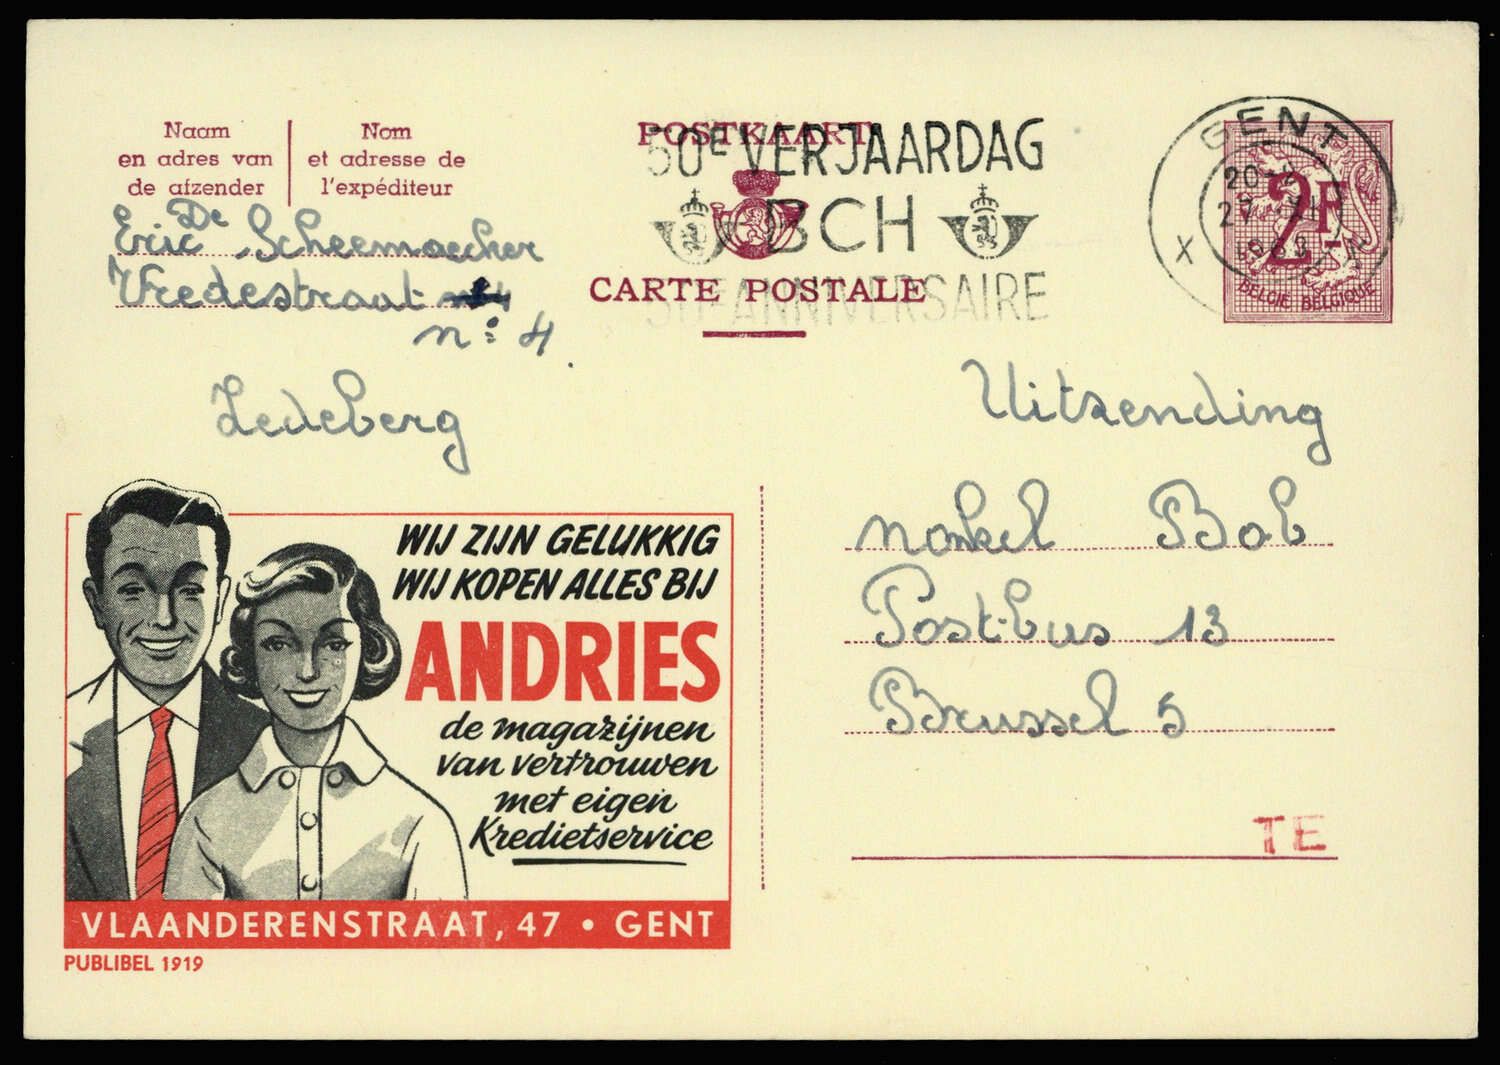 Naam
en adres van
de afzender
Nom
et adresse de
l'expéditeur
Eric De Scheemaecker
Vredestraat
n: 4
Ledeberg
POSTKAART
CARTE POSTALE
50E VERJAARDAG
BCH
50E ANNIVERSAIRE
GENT
X
2F
BELGIE BELGIQUE
Uitzending
nonkel Bob
Postbus 13
Brussel 5
TE
WIJ ZIJN GELUKKIG
WIJ KOPEN ALLES BIJ
ANDRIES
de magazijnen
van vertrouwen
met eigen
Kredietservice
VLAANDERENSTRAAT, 47 • GENT
PUBLIBEL 1919